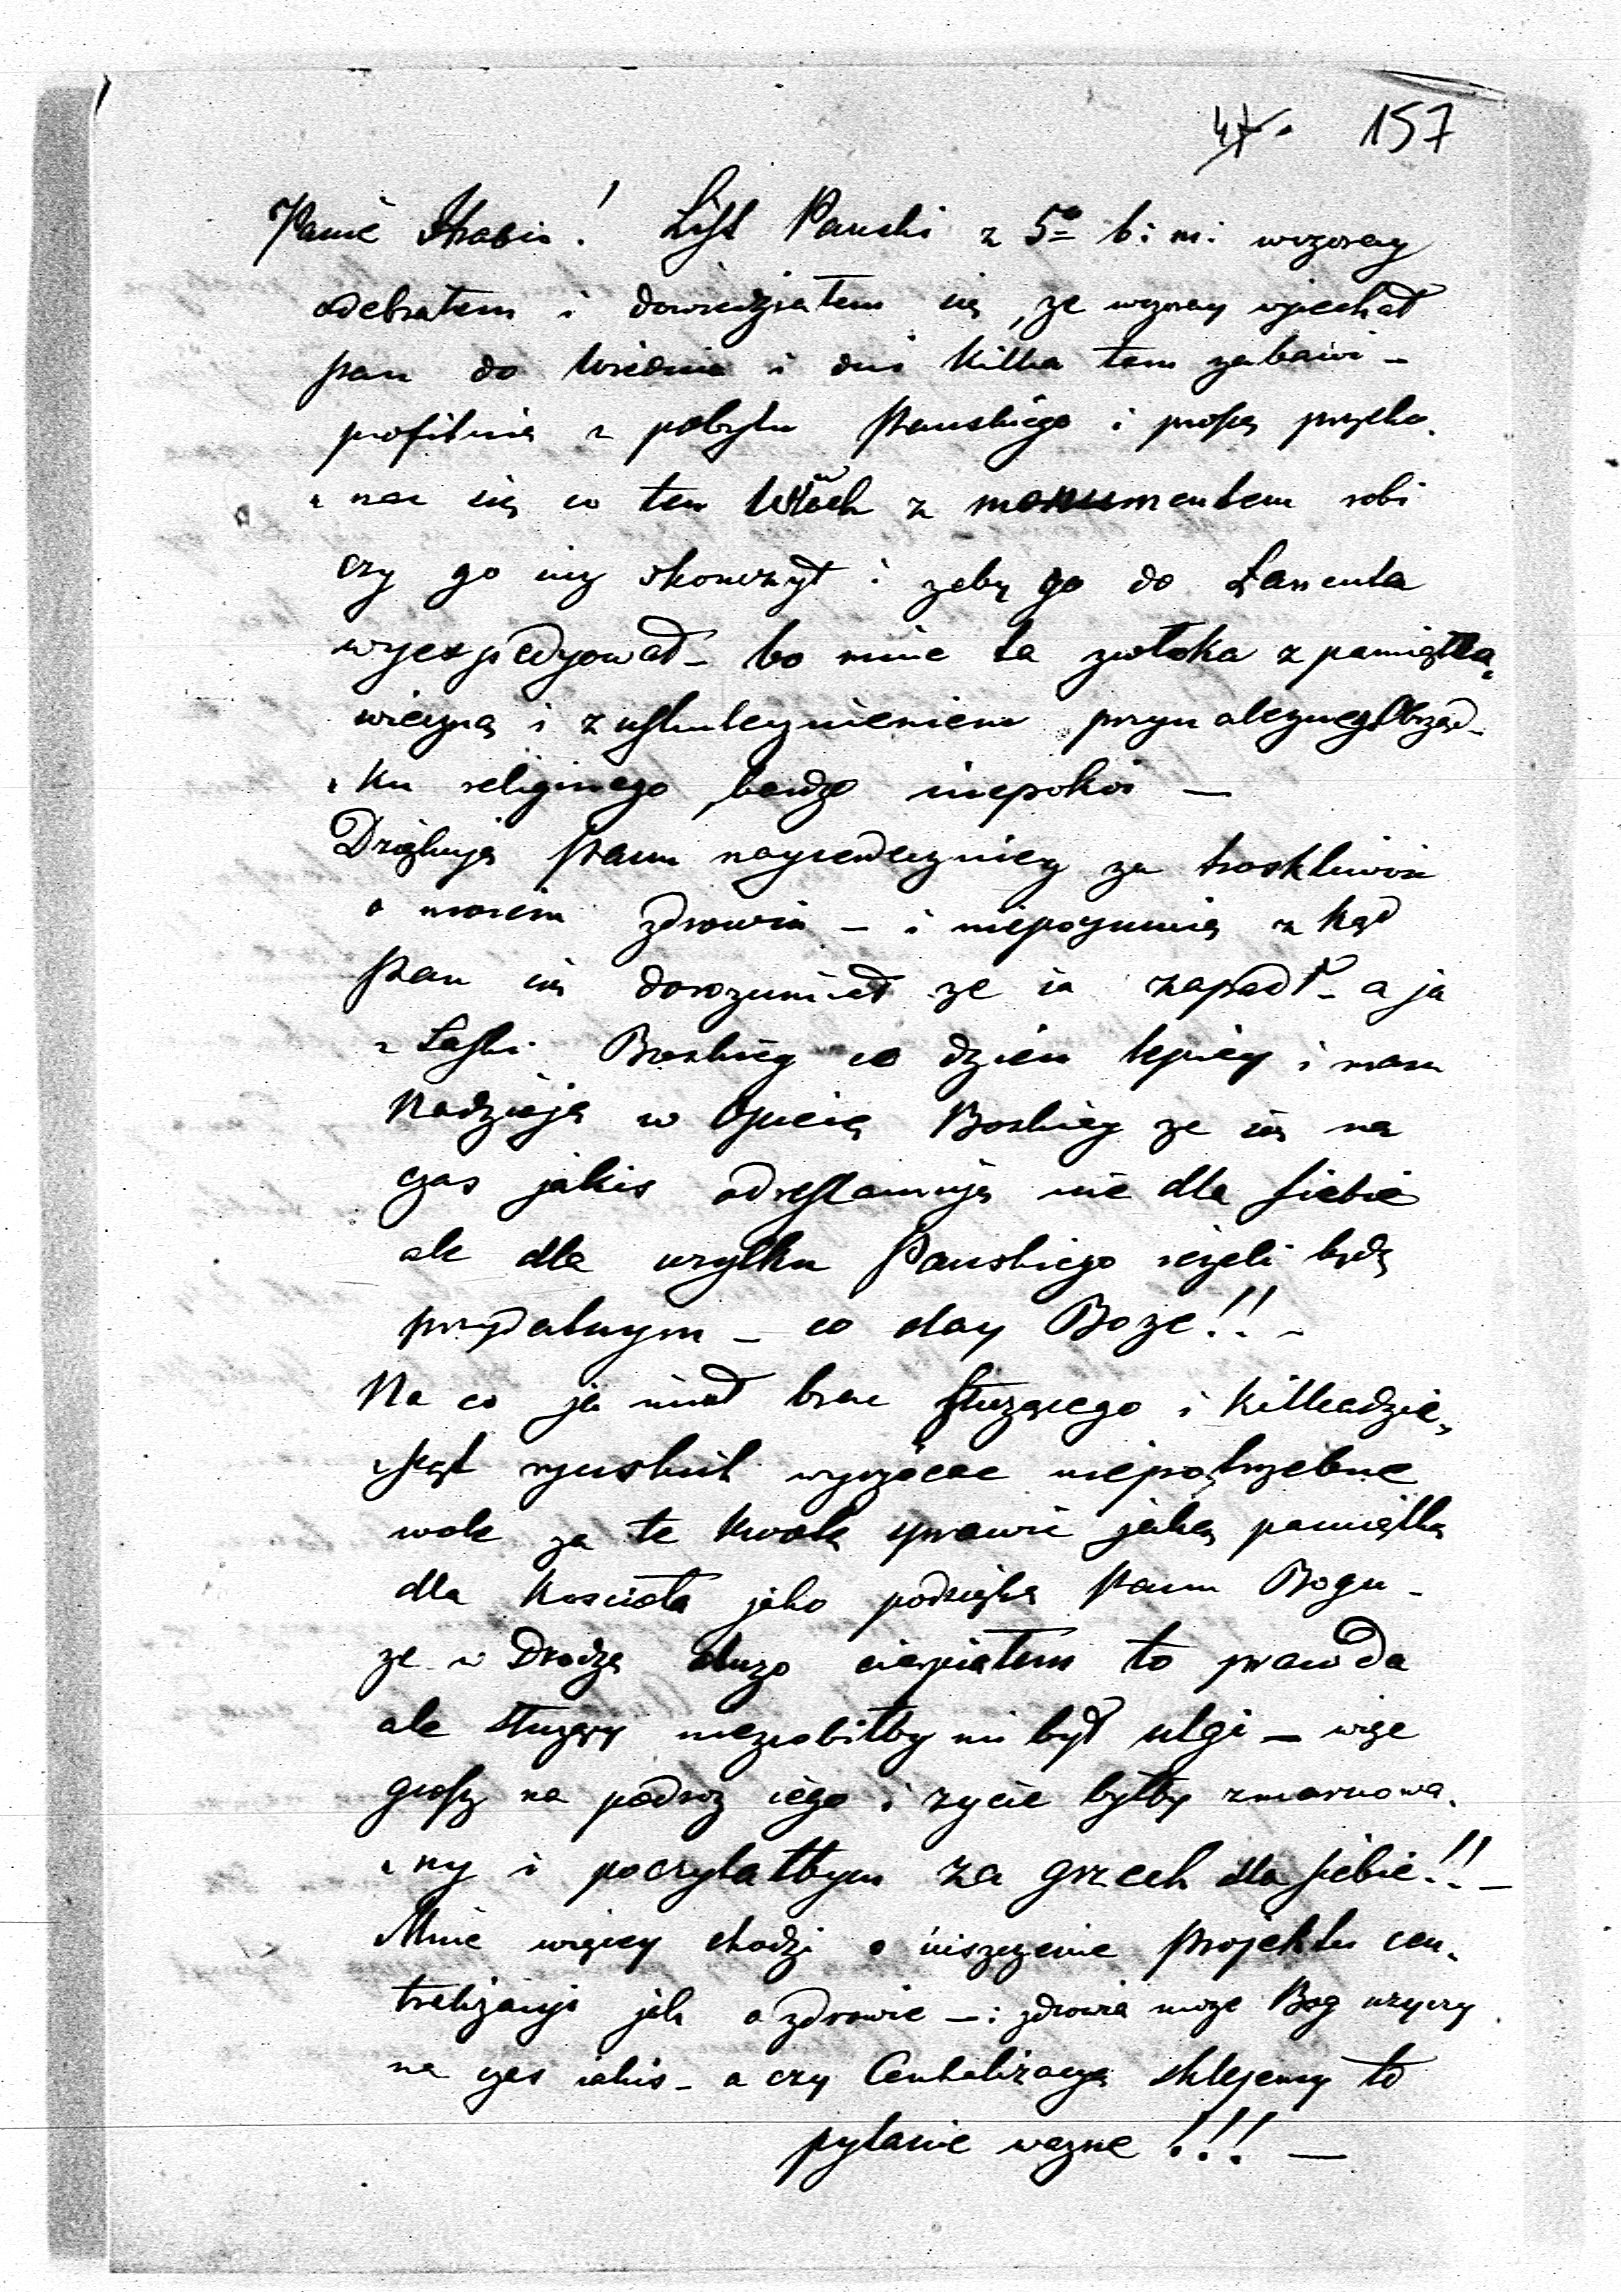 47. 157
Panie Hrabio! List Pański z 5º b: m: wczoray
odebrałem i dowiedziałem się, ze wczoray wyiechał
pan do Wiednia i dni kilka tam zabawi –
profituię z pobytu Pańskiego i proszę przeko-
-nac się co ten Włoch z monumentem robi
czy go iuz skonczył i zeby go do Łancuta
wyexpedyował – bo mnie ta zwłoka z pamiątką
wieczną i z uskutecznieniem przynaleznego Obrząd-
-ku religinego bardzo niepokoi –
Dziękuję Panu nayserdeczniey za troskliwosc
o moiem zdrowiu – i niepoymuię z kąd
Pan się dorozumiał ze ia zapadł – a ja
z Łaski Boskiey co dzien lepiey i mam
Nadzieję w Opiece Boskiey ze się na
czas jakis odrestauruję nie dla siebie
ale dla uzytku Pańskiego iezeli będę
przydatnym – co day Boze!! –
Na co ja miał brac słuzącego i kilkadzie-
-siąt ryńskich wyrzucac niepotrzebnie
wolę za te kwotę sprawic jaką pamiątkę
dla Kościoła jako podziękę Panu Bogu –
ze w Drodze duzo cierpiałem to prawda
ale słuzący niezrobiłby mi był ulgi – więc
grosz na podroz iego i zycie byłby zmarnowa-
-ny i poczytałbym za grzech dla siebie!! –
Mnie więcey chodzi o uiszczenie projektu cen-
tralizacyi jak o zdrowie – : zdrowia moze Bog uzyczy
na czas iakis – a czy Centralizacyę sklejemy to
pytanie wazne!!! –